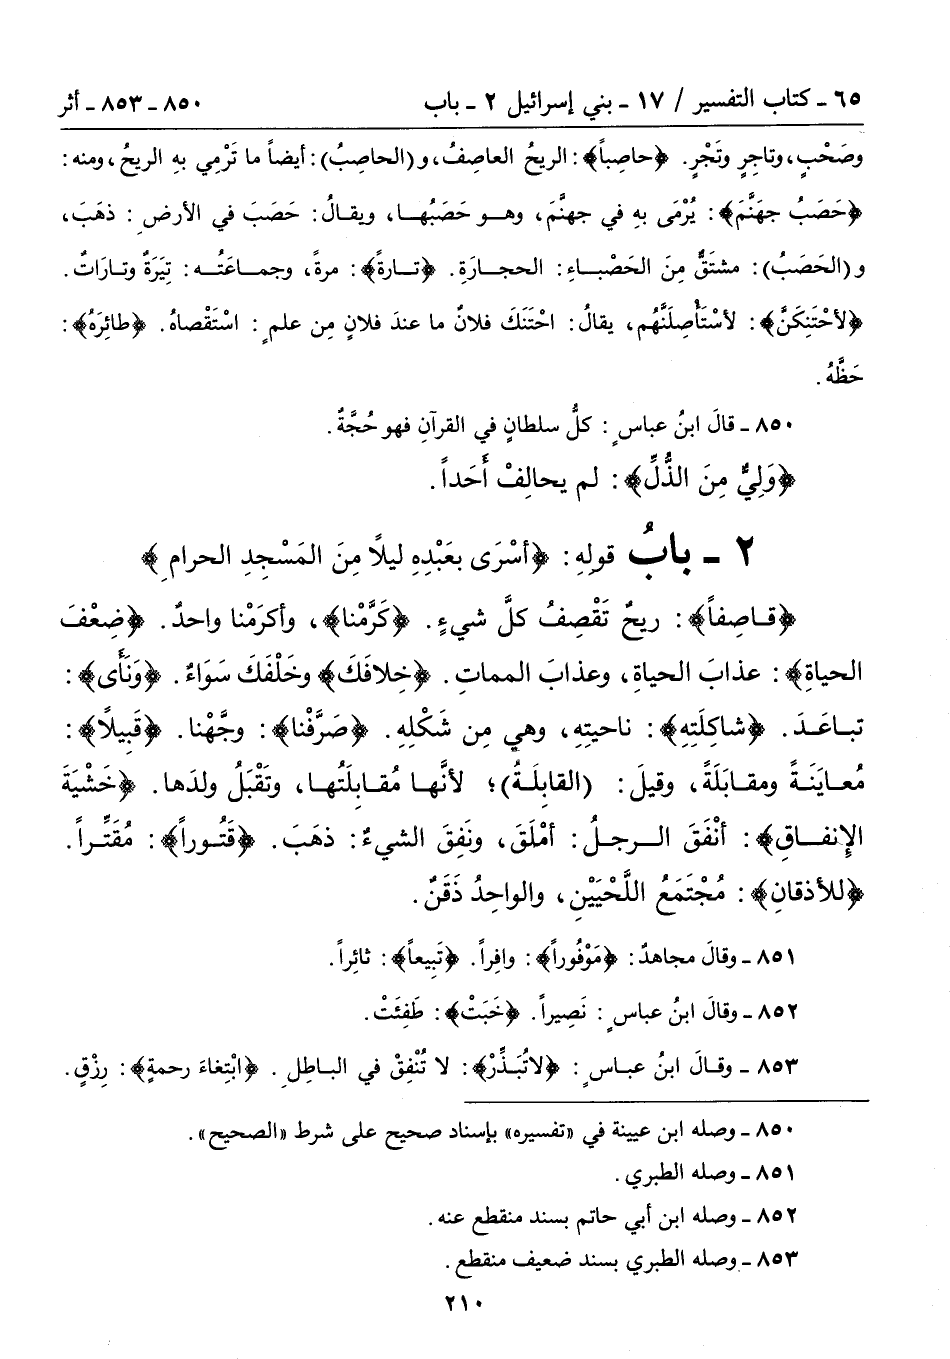 ٦٥ ـ كتاب التفسير / ١٧ ـ بني إسرائيل ٢ ـ باب ٨٥٠ ـ ٨٥٣ ـ أثر
وصَحْبٍ، وتاجرٍ وتَجْرٍ. ﴿حاصِباً﴾: الريحُ العاصِفُ، و(الحاصِبُ): أيضاً ما تَرْمِي بهِ الريحُ، ومنه:
﴿حَصَبُ جهَنَّمَ﴾: يُرْمَى بهِ في جهنَّمَ، وهـو حَصَبُهـا، ويقـالُ: حَصَبَ في الأرضِ: ذهَبَ،
و(الحَصَبُ): مشتَقٌّ مِنَ الحَصْبـاءِ: الحجـارَةِ. ﴿تـارةً﴾: مرةً، وجمـاعَتُـه: تِيَرَةٌ وتـاراتٌ.
﴿لأحْتَنِكَنَّ﴾: لأسْتَأْصِلَنَّهُم، يقالُ: احْتَنَكَ فلانٌ ما عندَ فلانٍ مِن علمٍ: اسْتَقْصاهُ. ﴿طائِرَهُ﴾:
حَظَّهُ.
٨٥٠ ـ قالَ ابنُ عباسٍ: كلُّ سلطانٍ في القرآنِ فهو حُجَّةٌ.
﴿وَلِيٌّ مِنَ الذُّلِّ﴾: لم يحالِفْ أَحَداً.
٢ ـ بابُ قولِهِ: ﴿أسْرَى بعَبْدِهِ ليلاً مِنَ المَسْجِدِ الحرامِ﴾
﴿قـاصِفاً﴾: ريحٌ تَقْصِفُ كلَّ شيءٍ. ﴿كَرَّمْنا﴾، وأكرَمْنا واحدٌ. ﴿ضِعْفَ
الحياةِ﴾: عذابَ الحياةِ، وعذابَ المماتِ. ﴿خِلافَكَ﴾ وخَلْفَكَ سَوَاءٌ. ﴿وَنَأَى﴾:
تباعَـدَ. ﴿شاكِلَتِهِ﴾: ناحيتِهِ، وهي مِن شَكْلِهِ. ﴿صَرَّفْنا﴾: وجَّهْنا. ﴿قَبِيلاً﴾:
مُعـايَنَـةً ومقـابَلَةً، وقيلَ: (القابِلَـةُ)؛ لأنَّهـا مُقـابِلَتُهـا، وتَقْبَلُ ولدَها. ﴿خَشْيَةَ
الإِنفـاقِ﴾: أنْفَقَ الـرجـلُ: أمْلَقَ، ونَفِقَ الشيءُ: ذهَبَ. ﴿قَتُـوراً﴾: مُقَتِّـراً.
﴿للأذقانِ﴾: مُجْتَمَعُ اللَّحْيَيْنِ، والواحِدُ ذَقَنٌ.
٨٥١ ـ وقالَ مجاهدٌ: ﴿مَوْفُوراً﴾: وافِراً. ﴿تَبِيعاً﴾: ثائِراً.
٨٥٢ ـ وقالَ ابنُ عباسٍ: نَصِيراً. ﴿خَبَتْ﴾: طَفِئَتْ.
٨٥٣ ـ وقـالَ ابنُ عبـاسٍ: ﴿لاتُبَـذِّرْ﴾: لا تُنْفِقْ في البـاطِلِ. ﴿ابْتِغاءَ رحمةٍ﴾: رِزْقٍ.
٨٥٠ ـ وصله ابن عيينة في «تفسيره» بإسناد صحيح على شرط «الصحيح».
٨٥١ ـ وصله الطبري.
٨٥٢ ـ وصله ابن أبي حاتم بسند منقطع عنه.
٨٥٣ ـ وصله الطبري بسند ضعيف منقطع.
٢١٠